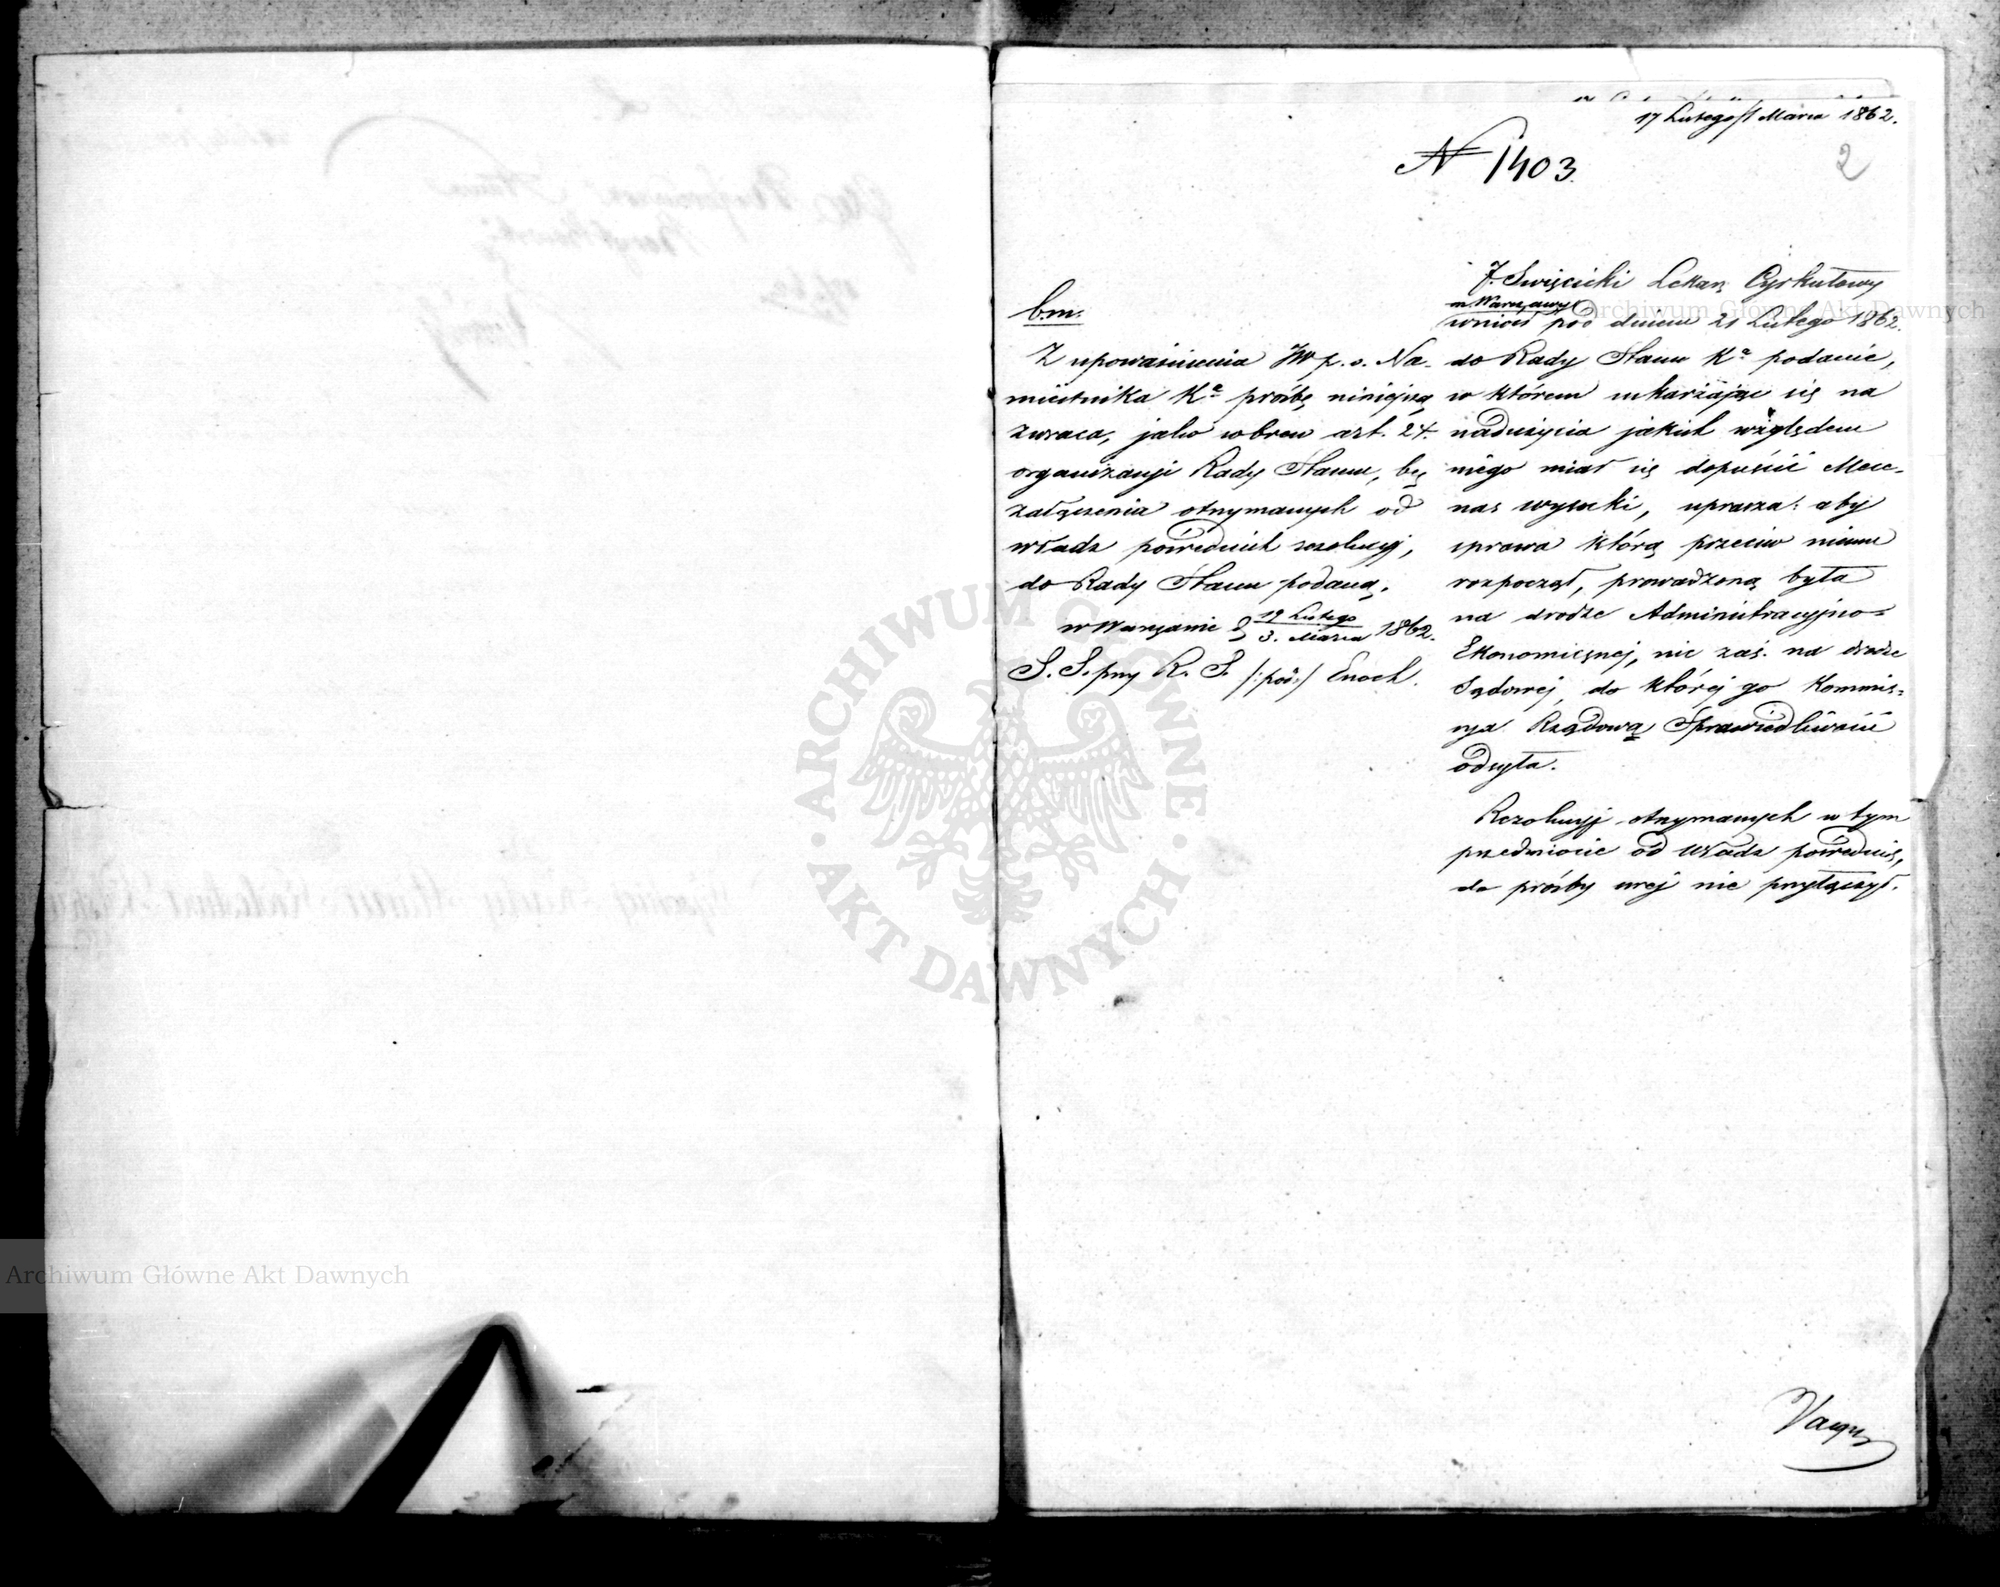 17 Lutego/1 Marca 1862.
2
N 1403.
J. Swięcicki Lekarz Cyrkułowy
w Warszawie
wniósł pod dniem 21 Lutego 1862.
do Rady Stanu Kr. podanie,
w którem uskarżając się na
nadużycia jakich względem
niego miał się dopuścić Mece-
nas Wysocki, uprasza: aby
sprawa którą przeciw niemu
rozpoczął, prowadzoną była
na drodze Administracyjno-
Ekonomicznej, nie zaś na drodze
Sądowej, do której go Kommis-
syja Rządowa Sprawiedliwości
odsyła.
Rezolucyj otrzymanych w tym
przedmiocie od Władz pośrednich,
do prośby swej nie przyłączył.
b.m.
Z upoważnienia JW p. o. Na-
miestnika Kr. prośbę niniejszą
zwraca, jako wbrew art. 24.
organizacyi Rady Stanu, bez
załączenia otrzymanych od
władz pośrednich rezolucyj,
do Rady Stanu podaną.
w Warszawie d 19 Lutego
3. Marca 1862.
S. S. przy R. S. /:pod:/ Enoch.
ARCHIWUM GŁÓWNE · AKT DAWNYCH ·
Archiwum Główne Akt Dawnych
Archiwum Główne Akt Dawnych